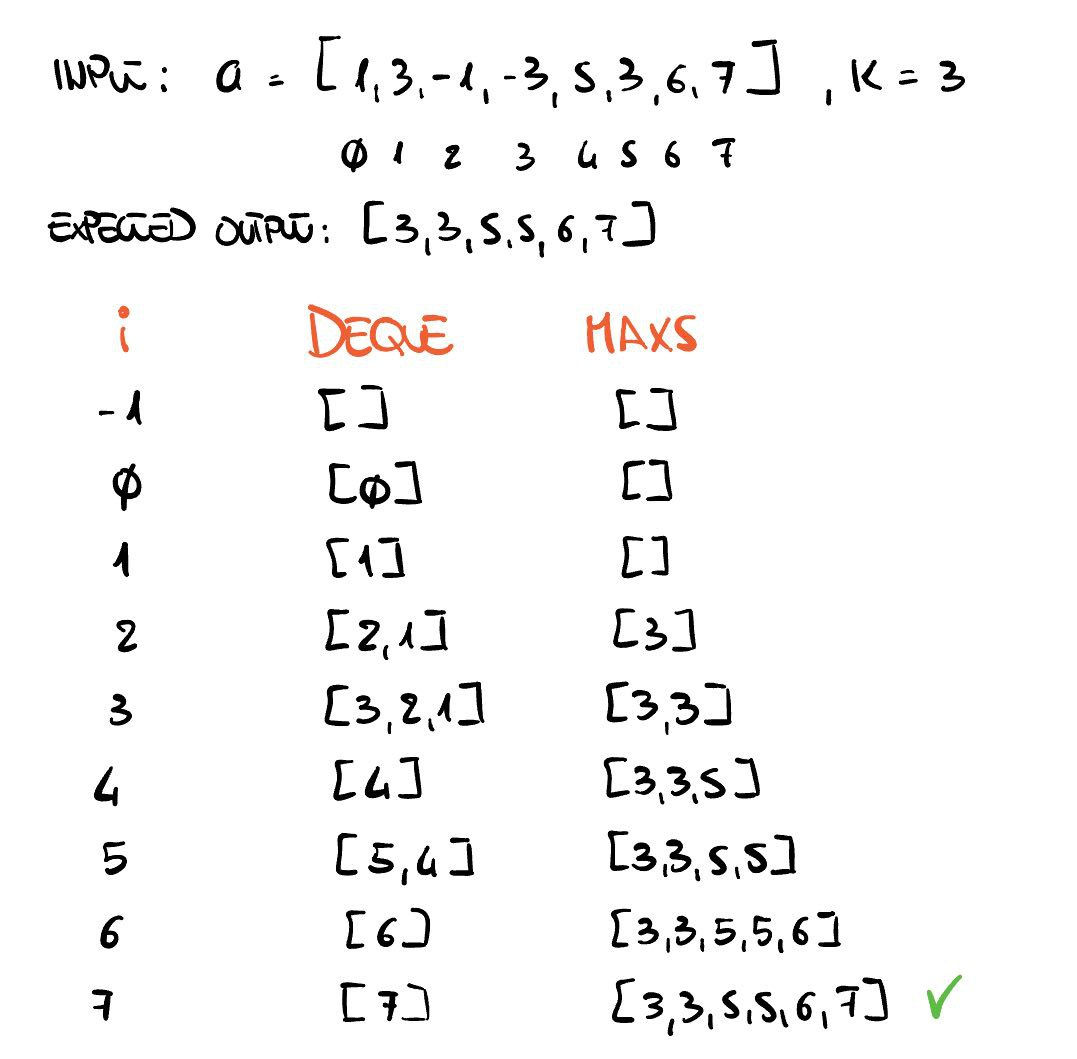 INPUT: a = [1,3,-1,-3,5,3,6,7] , K = 3
φ 1 2 3 4 5 6 7
EXPECTED OUTPUT: [3,3,5,5,6,7]
i DEQUE MAXS
-1 [] []
φ [φ] []
1 [1] []
2 [2,1] [3]
3 [3,2,1] [3,3]
4 [4] [3,3,5]
5 [5,4] [3,3,5,5]
6 [6] [3,3,5,5,6]
7 [7] [3,3,5,5,6,7] ✓